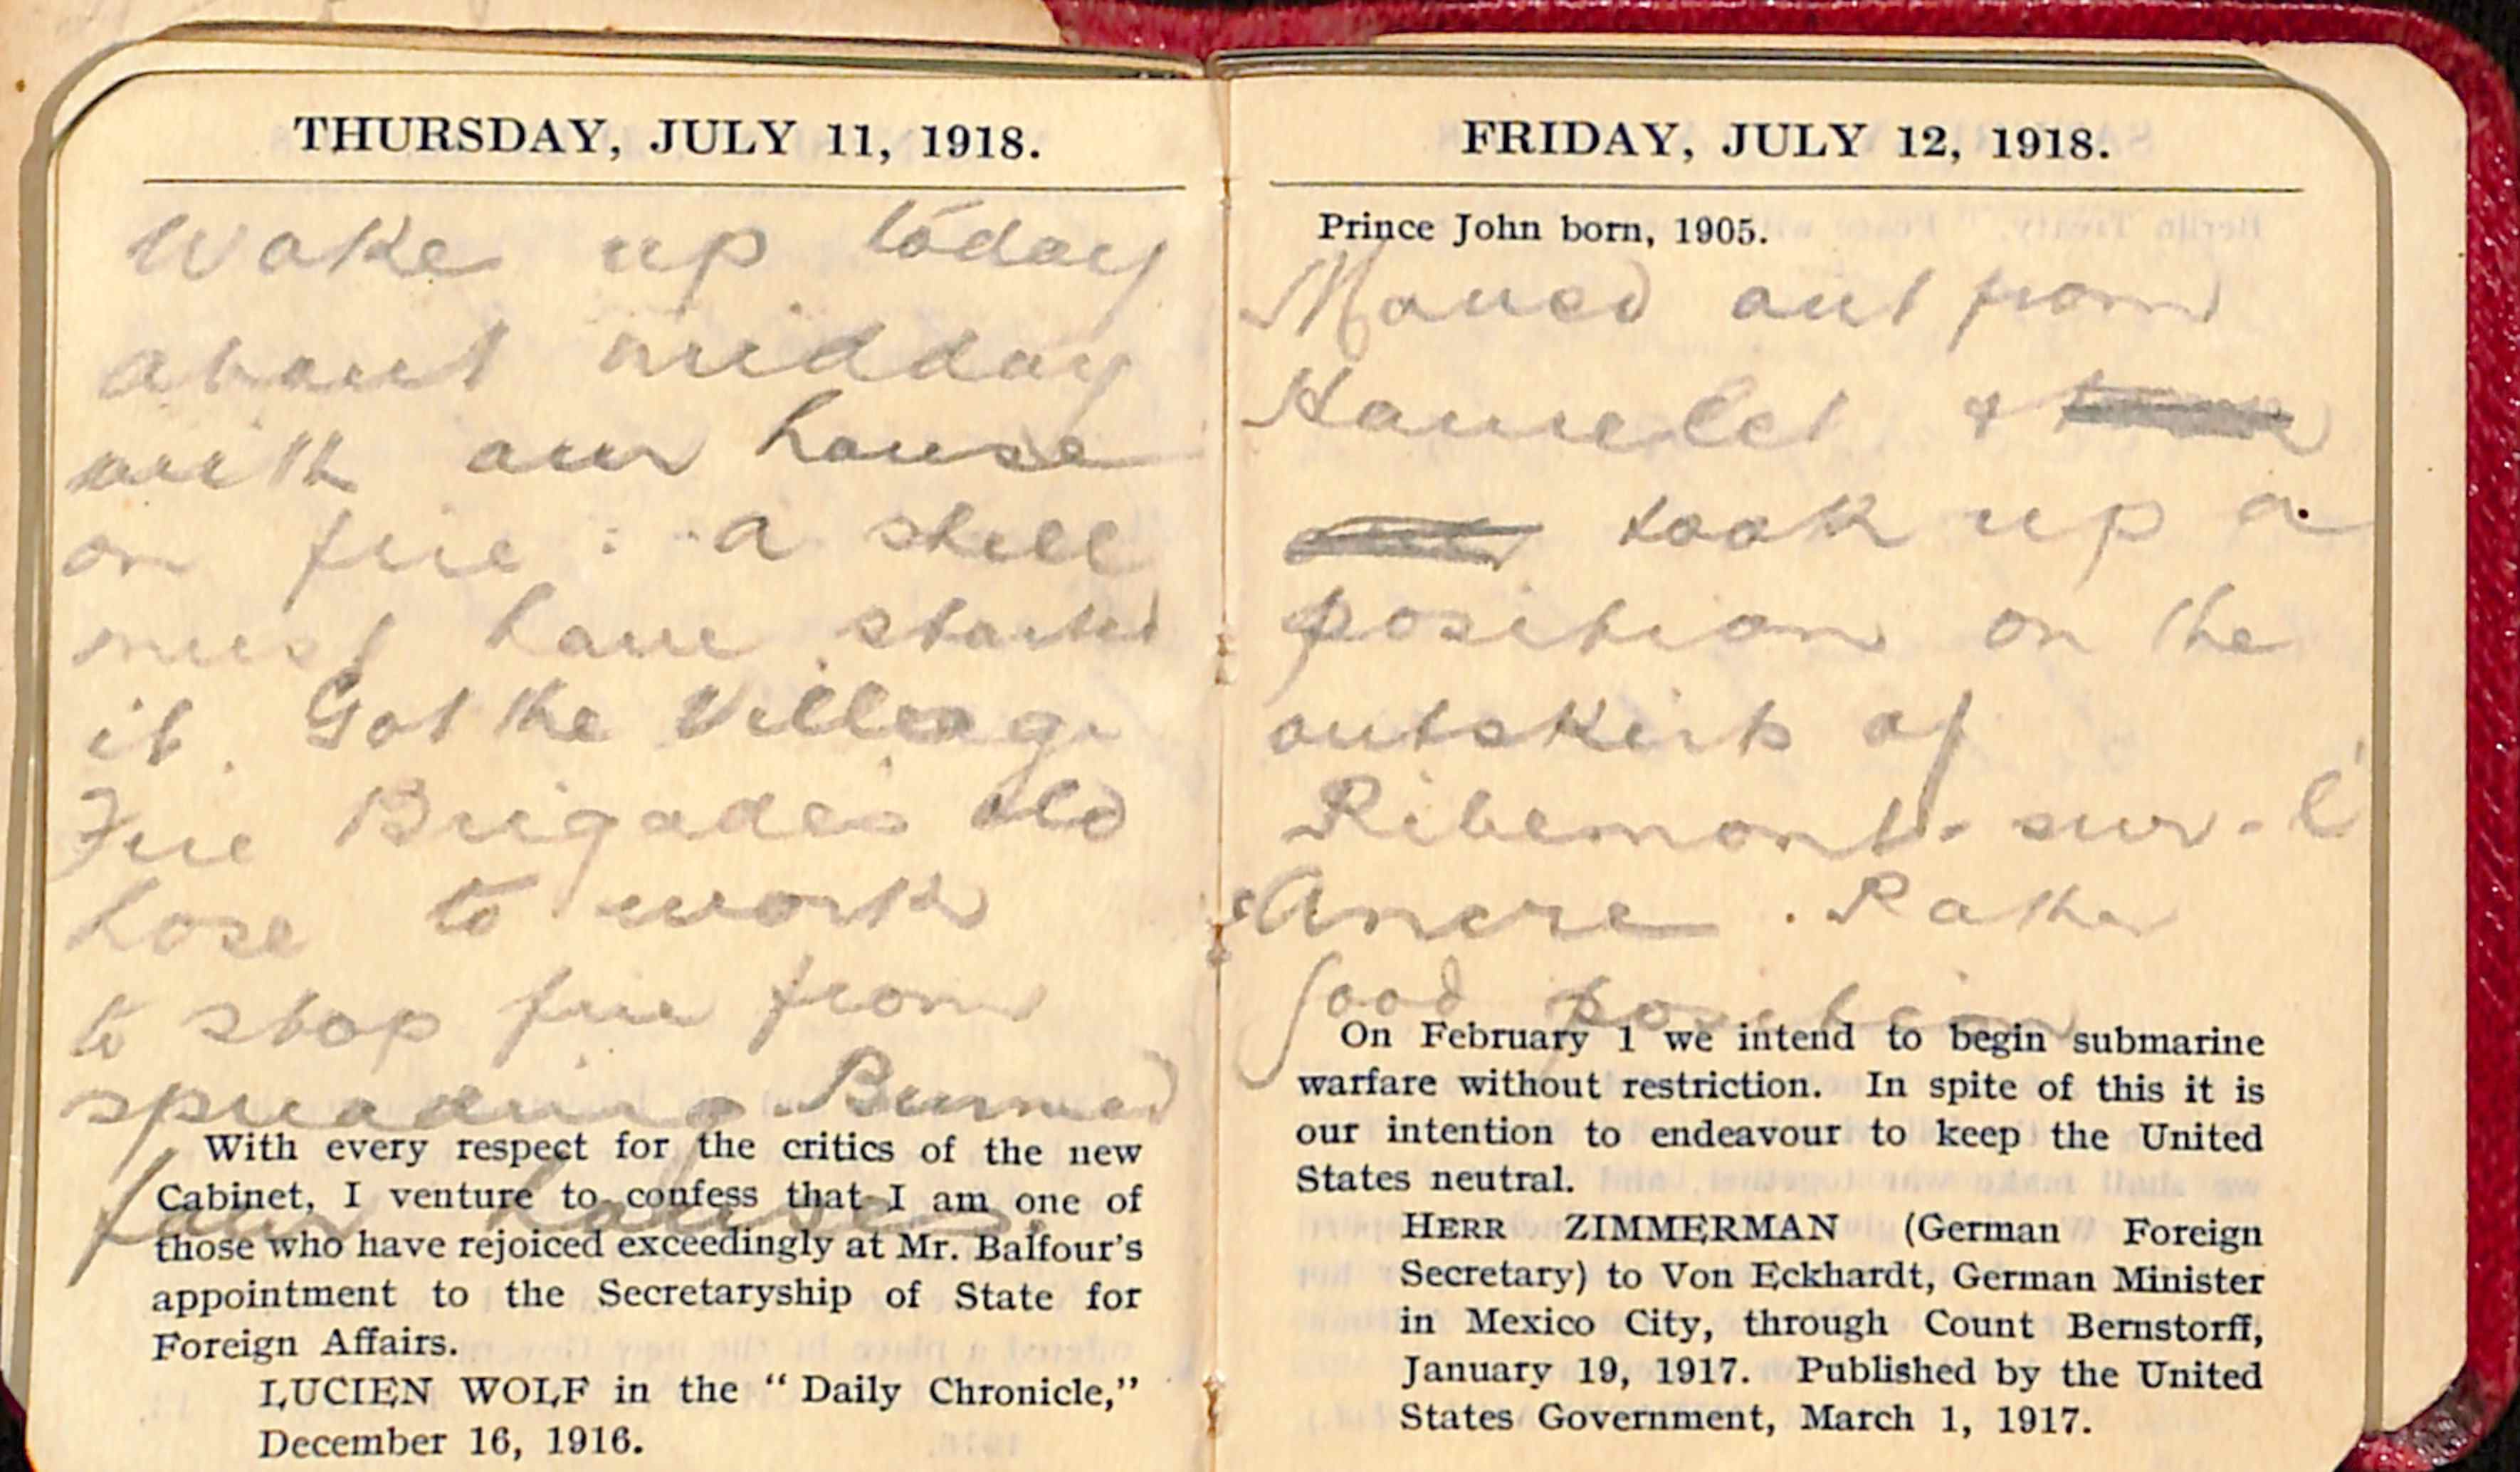 THURSDAY, JULY 11, 1918.
Wake up today
about midday
with our house
on fire : a shell
must have started
it. Got the Village
Fire Brigade's old
hose to work
to stop fire from
spreading. Burned
four houses.
With every respect for the critics of the new
Cabinet, I venture to confess that I am one of
those who have rejoiced exceedingly at Mr. Balfour's
appointment to the Secretaryship of State for
Foreign Affairs.
LUCIEN WOLF in the “Daily Chronicle,”
December 16, 1916.
FRIDAY, JULY 12, 1918.
Prince John born, 1905.
Moved out from
Hamelet &
took up a
position on the
outskirts of
Ribemont-sur-l'
Ancre. Rather
good position
On February 1 we intend to begin submarine
warfare without restriction. In spite of this it is
our intention to endeavour to keep the United
States neutral.
HERR ZIMMERMAN (German Foreign
Secretary) to Von Eckhardt, German Minister
in Mexico City, through Count Bernstorff,
January 19, 1917. Published by the United
States Government, March 1, 1917.